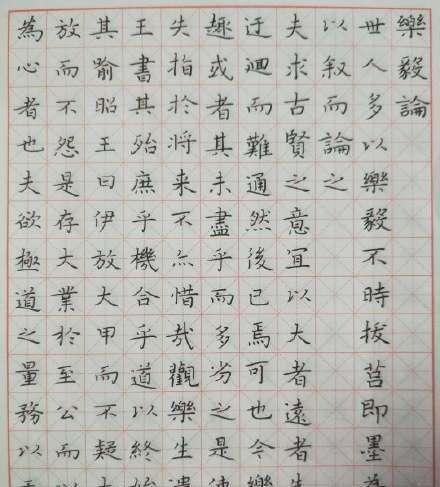 樂毅論
世人多以樂毅不時拔莒即墨為
以叙而論之
夫求古賢之意宜以大者遠者先
迂迴而難通然後已焉可也今樂
趣或者其未盡乎而多劣之是使
失指於將来不亦惜哉觀樂生遺
王書其殆庶乎機合乎道以終始
其喻昭王曰伊放大甲而不疑大
放而不怨是存大業於至公而以
為心者也夫欲極道之量務以天